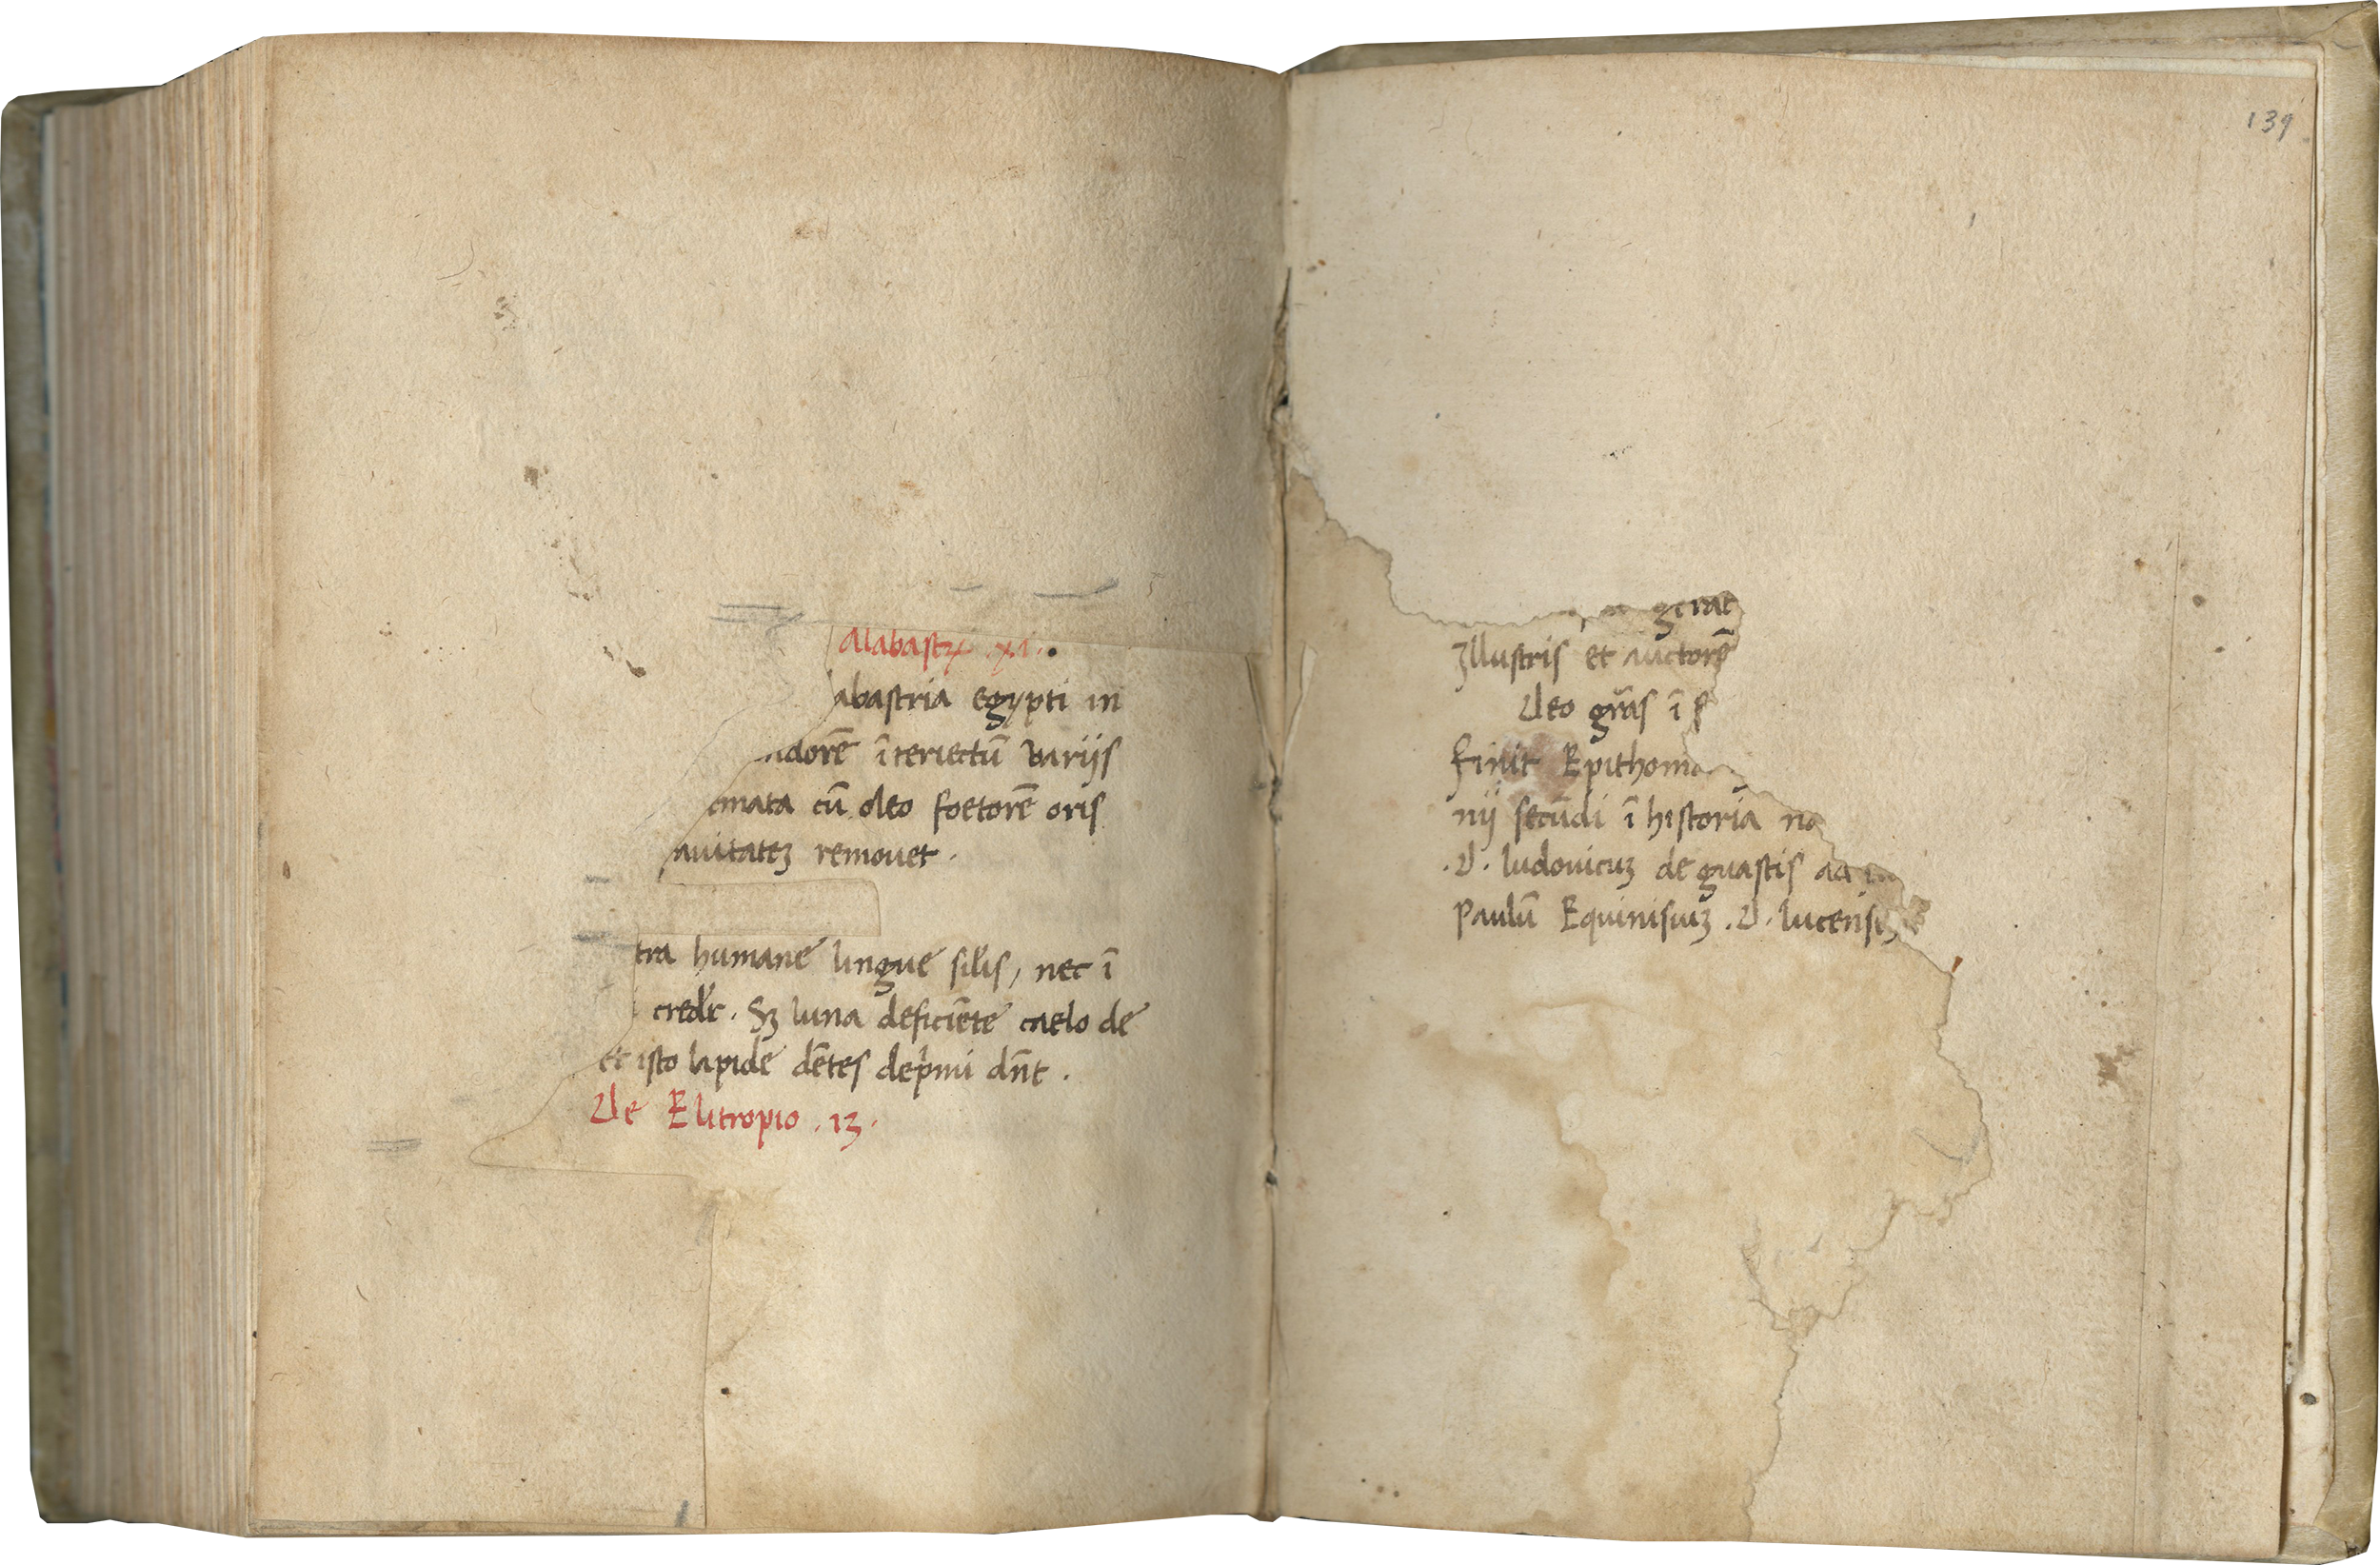 Alabastri .xi.
abastria egypti in
adorē īteriectū variis
cmata cū oleo foetorē oris
auitatem remouet .
tra humane lingue silis, nec ī
credit . Sz luna deficiēte caelo de
et isto lapide dētes depmi dnt .
De Elitropio . 13 .
139
gerat
Illustris et auctorē
Deo gras ī
finit Epithoma
nij secūdi ī historia na
.D. ludouicuz de guastis ad
Paulū Equinisiuz .D. lucensez